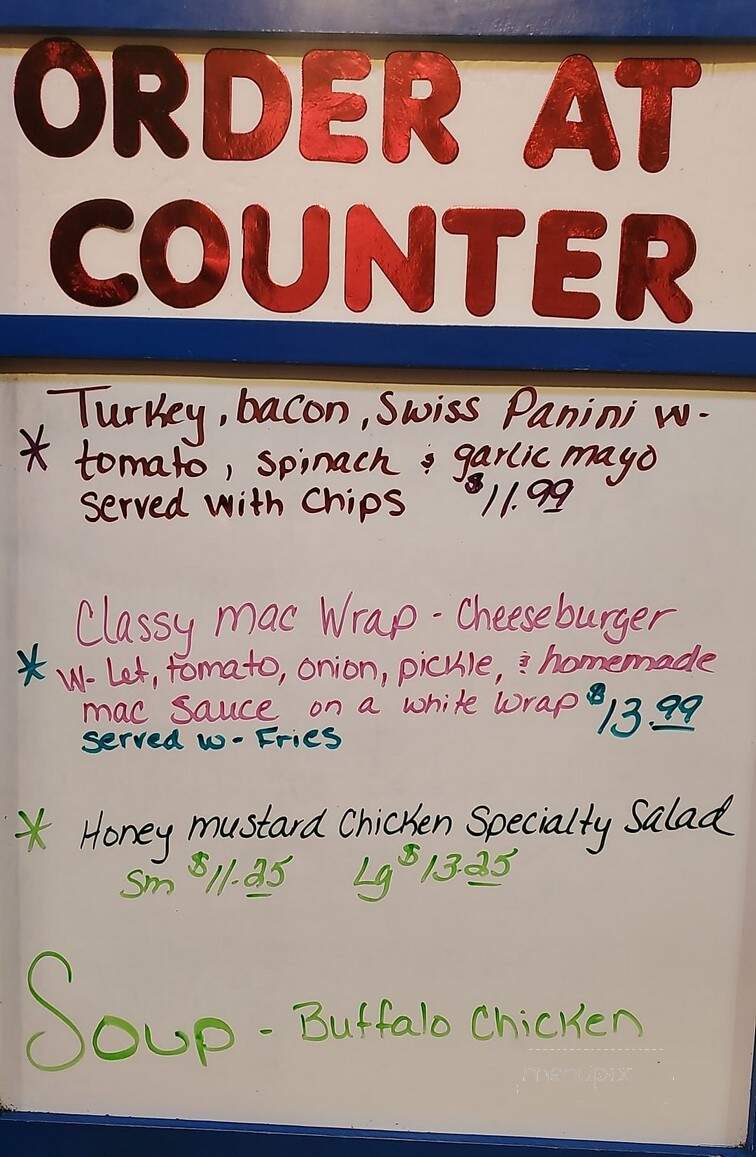 ORDER AT
COUNTER
Turkey, bacon, Swiss Panini w-
* tomato, spinach & garlic mayo
served with Chips $11.99
Classy mac Wrap - Cheeseburger
* w- Let, tomato, onion, pickle, & homemade
mac sauce on a white wrap $13.99
served w- Fries
* Honey mustard Chicken Specialty Salad
Sm $11.25 Lg $13.25
Soup - Buffalo Chicken
menupix